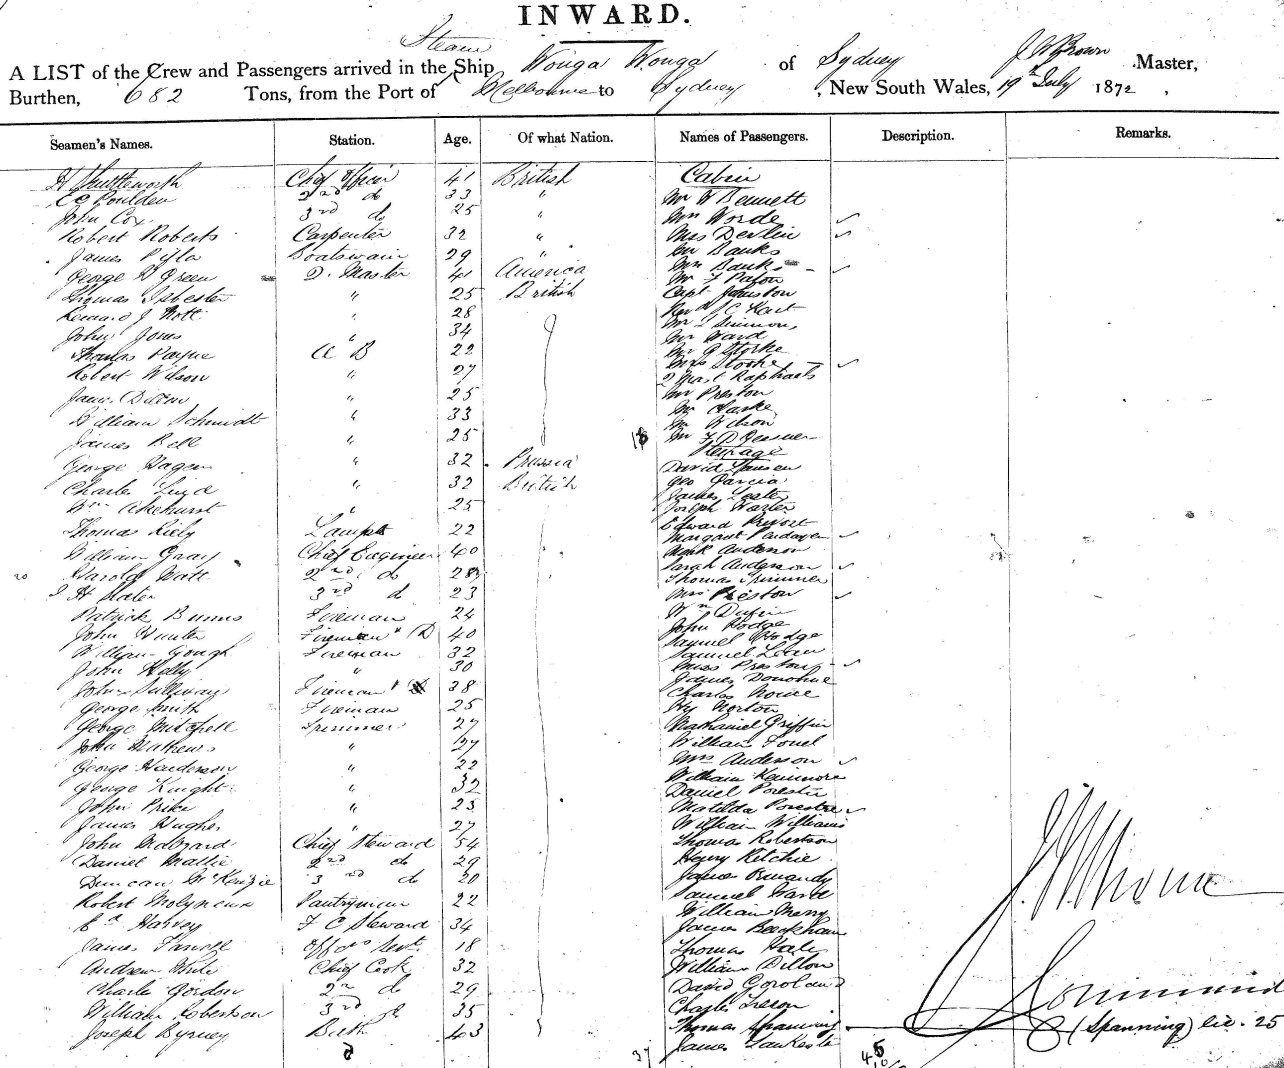 INWARD.
Steam
A LIST of the Crew and Passengers arrived in the Ship Wonga Wonga of Sydney J W Brown Master,
Burthen, 682 Tons, from the Port of Melbourne to Sydney, New South Wales, 19th July 1872,
Seamen's Names. Station. Age. Of what Nation. Names of Passengers. Description. Remarks.
H Shuttleworth Chief Officer 41 British Cabin
E C Poulden 2nd do 33 " Mr W Bennett
John Cox 3rd do 25 " Mrs Worde
Robert Roberts Carpenter 32 " Miss Devlin
James Boatswain 29 " Mr Banks
George H Green Q. Master 41 America Mrs Banks
Thomas Isbester " 25 British Mr F Paton
Capt Johnston
Leonard J Nott " 28 Revd J C Kart
John Jones " 34 Mr Simmons
Mr Ward
Thomas Payne A B 22 Mr G Storke
Robert Wilson " 27 Mrs Storke
2 Mast Raphaels
James Dixon " 25 Mr Preston
William Schmidt " 33 Mr Clarke
Mr Wilson
James Bell " 25 18 Mr F D
Steerage
George Hagen " 32 Prussia David Hansen
Charles Luyd " 32 British Geo Garcia
James Lester
Wm Akehurst " 25 Joseph Warter
Thomas Riely Lamps 22 Edward Prevort
Margaret
William Gray Chief Engineer 40 Mark Anderson
Harold Watt 2nd do 28 Sarah Anderson
20
Thomas Trimmer
J H Slater 3rd do 23 Mrs Preston
Patrick Burns Fireman 24 Wm Dufin
John Hunter Fireman " (D) 40 John Hodge
William Gough Fireman 32 Samuel Hodge
Samuel
John Kelly " 30 Miss Preston
John Sullivan Fireman " 38 James Donohue
George Smith Fireman 25 Charles
Hy Norton
George Mitchell Trimmer 27 Nathaniel Griffin
John Mathews " 27 William
George Henderson " 22 Mrs Anderson
George Knight " 32 William Kenimore
Daniel Porestie
John Price " 23 Matilda
James Hughes " 27 William Williams
John Chief Steward 54 Thomas Robertson
Daniel Mattie 2nd do 29 Henry Ritchie
Duncan McKenzie 3rd do 20 James Ormandy
Robert Molyneux Pantryman 22 Samuel Ward
Ed Harvey F C Steward 34 William Merry
James Beckham
James Farrell Offrs Servt 18 Thomas Hale
Andrew White Chief Cook 32 William Dillon
Charles Gordon 2nd do 29 David
William Robertson 3rd do 35 Charles
Joseph Byrney Butch 43 Thomas Spanning
James
37
45
J. W. Brown
Command
(Spanning) 25